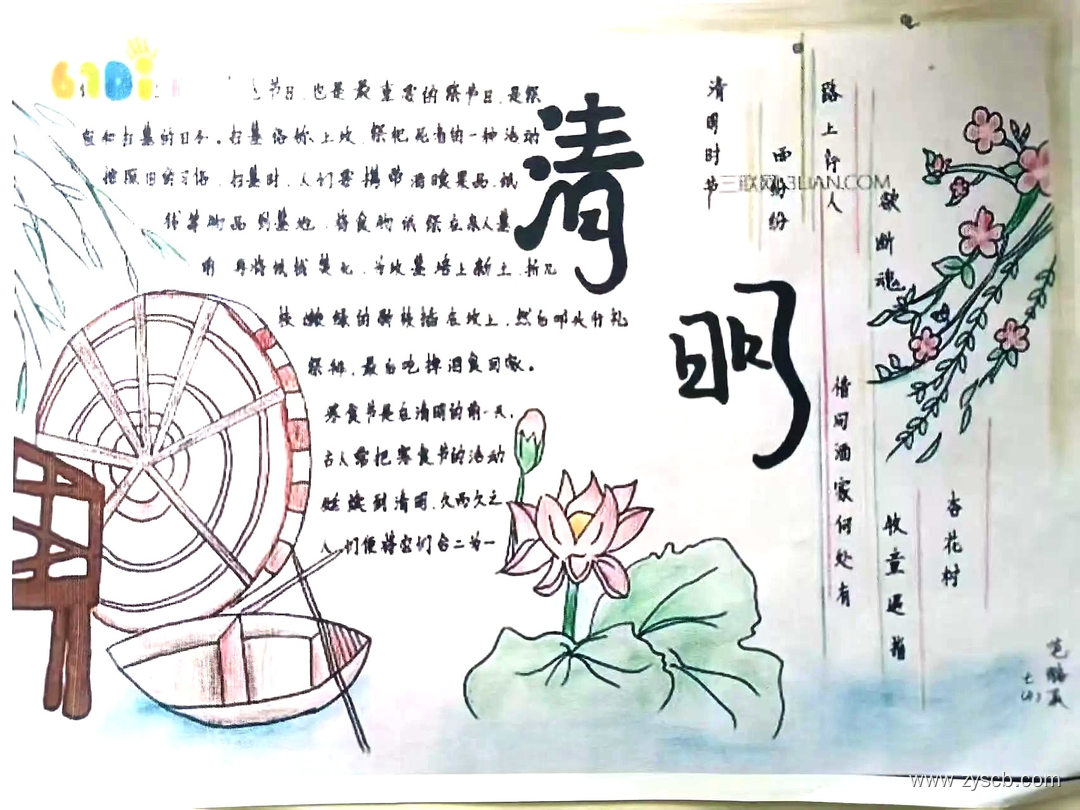 节日,也是最重要的祭节日,是祭
祖和扫墓的日子。扫墓俗称上坟,祭祀死者的一种活动
按照旧的习俗,扫墓时,人们要携带酒食果品,纸
钱等物品到墓地,将食物供祭在亲人墓
前 再将纸钱焚化,为坟墓培上新土,折几
枝嫩绿的新枝插在坟上,然后叩头行礼
祭拜,最后吃掉酒食回家。
寒食节是在清明的前一天,
古人常把寒食节的活动
延续到清明,久而久之
人们便将它们合二为一
清明
清明时节
雨纷纷
路上行人
欲断魂
借问酒家何处有
牧童遥指
杏花村
三联网 3LIAN.COM
www.zyscb.com